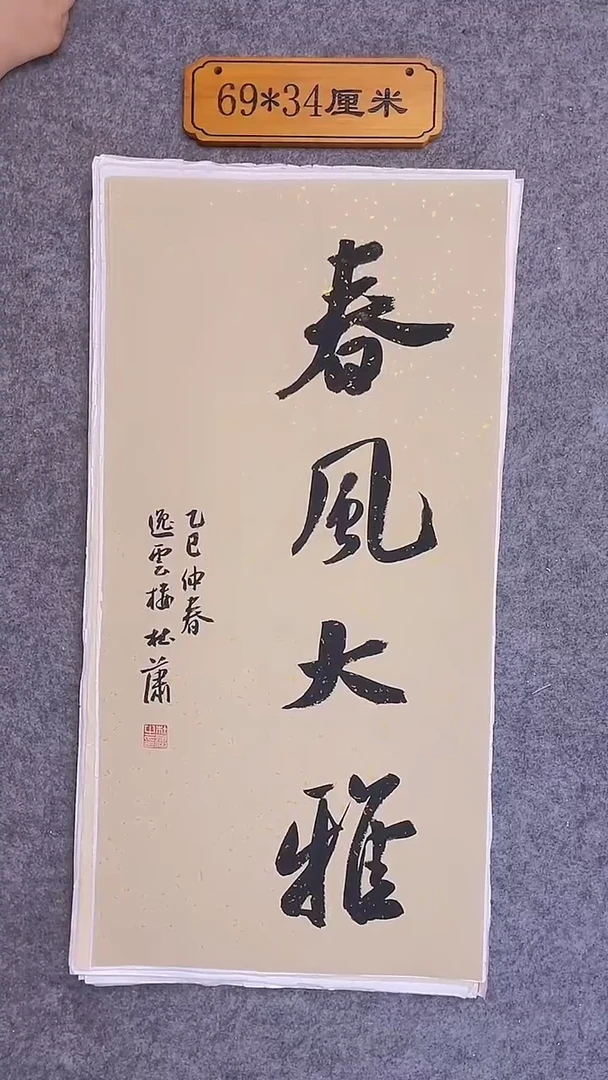 69*34厘米
春風大雅
乙巳仲春
逸雲楼杜蕭